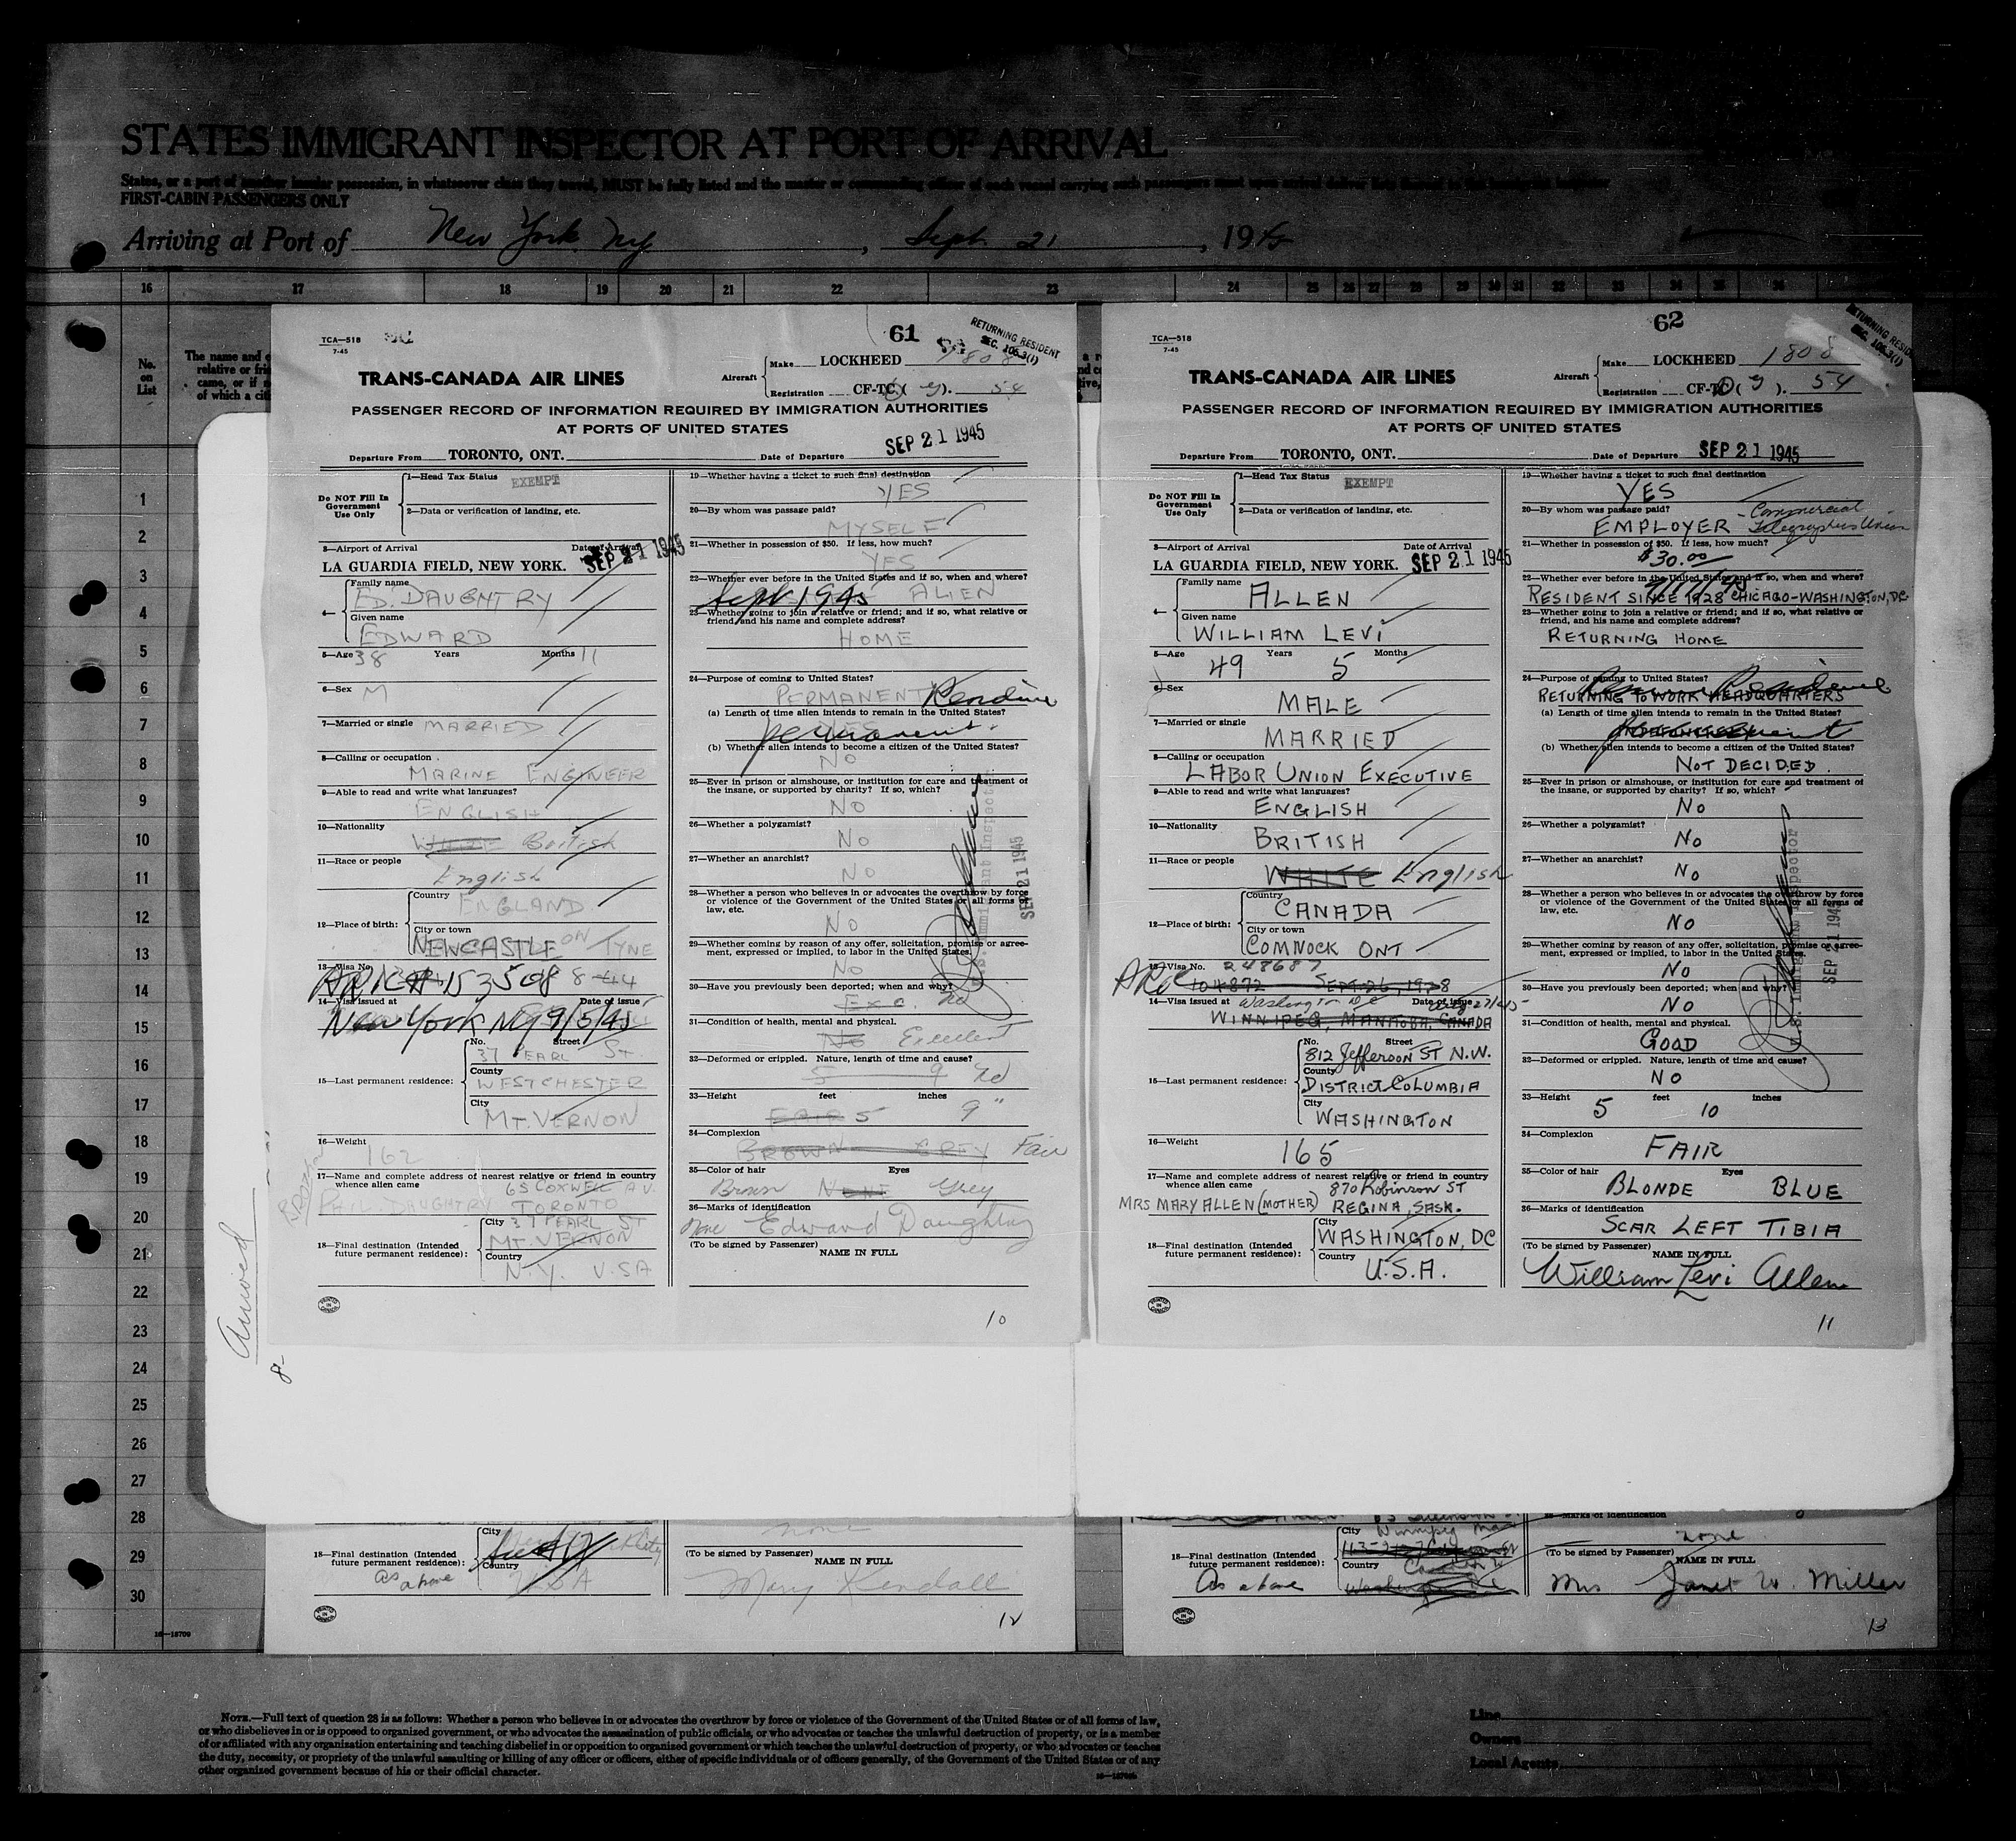 STATES IMMIGRANT INSPECTOR AT PORT OF ARRIVAL
FIRST-CABIN PASSENGERS ONLY
Arriving at Port of New York NY, Sept 21, 19
16 17 18 19 20 21 22 23 24 25 26 27 28 29 30 31 32 33 34 35 36
No. on List
The name and
relative or
came, or if
of which a
1
2
3
4
5
6
7
8
9
10
11
12
13
14
15
16
17
18
19
20
21
22
23
24
25
26
27
28
29
30
16—18709
Arrived
8-
TCA—518
7-45
61
RETURNING RESIDENT
SEC. 106.3(1)
TRANS-CANADA AIR LINES
Aircraft
Make LOCKHEED 1808
Registration CF-TC( ). 54
PASSENGER RECORD OF INFORMATION REQUIRED BY IMMIGRATION AUTHORITIES
AT PORTS OF UNITED STATES
Departure From TORONTO, ONT. Date of Departure SEP 21 1945
Do NOT Fill In Government Use Only
1—Head Tax Status EXEMPT
2—Data or verification of landing, etc.
3—Airport of Arrival Date of Arrival
LA GUARDIA FIELD, NEW YORK. SEP 21 1945
4— Family name
ED. DAUGHTRY
Given name
EDWARD
5—Age 38 Years Months 11
6—Sex M
7—Married or single MARRIED
8—Calling or occupation
MARINE ENGINEER
9—Able to read and write what languages?
ENGLISH
10—Nationality
WHITE British
11—Race or people
English
12—Place of birth:
Country
ENGLAND
City or town
NEWCASTLE ON TYNE
13—Visa No.
14—Visa issued at Date of issue
New York NY 9/5/45
15—Last permanent residence:
No. Street
37 PEARL ST.
County
WESTCHESTER
City
MT. VERNON
16—Weight
162
17—Name and complete address of nearest relative or friend in country
whence alien came 65 COXWELL AV.
PHIL. DAUGHTRY TORONTO
18—Final destination (Intended future permanent residence):
City 37 PEARL ST
MT. VERNON
Country
N.Y. U.S.A
19—Whether having a ticket to such final destination
YES
20—By whom was passage paid?
MYSELF
21—Whether in possession of $50. If less, how much?
YES
22—Whether ever before in the United States and if so, when and where?
Sept 1945 ALIEN
23—Whether going to join a relative or friend; and if so, what relative or
friend, and his name and complete address?
HOME
24—Purpose of coming to United States?
PERMANENT
(a) Length of time alien intends to remain in the United States?
permanent.
(b) Whether alien intends to become a citizen of the United States?
NO
25—Ever in prison or almshouse, or institution for care and treatment of
the insane, or supported by charity? If so, which?
NO
26—Whether a polygamist?
NO
27—Whether an anarchist?
NO
28—Whether a person who believes in or advocates the overthrow by force
or violence of the Government of the United States or all forms of
law, etc.
NO
29—Whether coming by reason of any offer, solicitation, promise or agree-
ment, expressed or implied, to labor in the United States.
NO
30—Have you previously been deported; when and why?
Exc. no
31—Condition of health, mental and physical.
No Excellent
32—Deformed or crippled. Nature, length of time and cause?
5 9 no
33—Height feet inches
FAIR 5 9"
34—Complexion
BROWN GREY Fair
35—Color of hair Eyes
Brown NONE Grey
36—Marks of identification
none Edward Daughtry
(To be signed by Passenger) NAME IN FULL
U.S. Immigrant Inspector
SEP 21 1945
PRINTED IN CANADA
10
TCA—518
7-45
62
RETURNING RESIDENT
SEC. 106.3(1)
TRANS-CANADA AIR LINES
Aircraft
Make LOCKHEED 1808
Registration CF-TC( ). 54
PASSENGER RECORD OF INFORMATION REQUIRED BY IMMIGRATION AUTHORITIES
AT PORTS OF UNITED STATES
Departure From TORONTO, ONT. Date of Departure SEP 21 1945
Do NOT Fill In Government Use Only
1—Head Tax Status EXEMPT
2—Data or verification of landing, etc.
3—Airport of Arrival Date of Arrival
LA GUARDIA FIELD, NEW YORK. SEP 21 1945
4— Family name
ALLEN
Given name
WILLIAM LEVI
5—Age 49 Years 5 Months
6—Sex
MALE
7—Married or single
MARRIED
8—Calling or occupation
LABOR UNION EXECUTIVE
9—Able to read and write what languages?
ENGLISH
10—Nationality
BRITISH
11—Race or people
WHITE English
12—Place of birth:
Country
CANADA
City or town
COMNOCK ONT
13—Visa No. 248687
ARC 104872 SEPT. 26, 1928
14—Visa issued at Washington DC Date of issue
WINNIPEG, MANITOBA, CANADA
15—Last permanent residence:
No. Street
812 Jefferson ST N.W.
County
DISTRICT COLUMBIA
City
WASHINGTON
16—Weight
165
17—Name and complete address of nearest relative or friend in country
whence alien came 870 Robinson ST
MRS MARY ALLEN (MOTHER) REGINA, SASK.
18—Final destination (Intended future permanent residence):
City
WASHINGTON, DC
Country
U.S.A.
19—Whether having a ticket to such final destination
YES
20—By whom was passage paid? Commercial
EMPLOYER - Telegraphers Union
21—Whether in possession of $50. If less, how much?
$30.00
22—Whether ever before in the United States and if so, when and where?
RESIDENT SINCE 1928 CHICAGO-WASHINGTON, DC
23—Whether going to join a relative or friend; and if so, what relative or
friend, and his name and complete address?
RETURNING HOME
24—Purpose of coming to United States?
RETURNING TO WORK HEADQUARTERS
(a) Length of time alien intends to remain in the United States?
permanent
(b) Whether alien intends to become a citizen of the United States?
NOT DECIDED.
25—Ever in prison or almshouse, or institution for care and treatment of
the insane, or supported by charity? If so, which?
NO
26—Whether a polygamist?
NO
27—Whether an anarchist?
NO
28—Whether a person who believes in or advocates the overthrow by force
or violence of the Government of the United States or all forms of
law, etc.
NO
29—Whether coming by reason of any offer, solicitation, promise or agree-
ment, expressed or implied, to labor in the United States.
NO
30—Have you previously been deported; when and why?
NO
31—Condition of health, mental and physical.
GOOD
32—Deformed or crippled. Nature, length of time and cause?
NO
33—Height 5 feet 10 inches
34—Complexion
FAIR
35—Color of hair Eyes
BLONDE BLUE
36—Marks of identification
SCAR LEFT TIBIA
(To be signed by Passenger) NAME IN FULL
William Levi Allen
U.S. Immigrant Inspector
SEP 21 1945
PRINTED IN CANADA
11
18—Final destination (Intended future permanent residence):
As above
City
Country
U.S.A
none
(To be signed by Passenger) NAME IN FULL
Mary Kendall
PRINTED IN CANADA
12
18—Final destination (Intended future permanent residence):
As above
City Winnipeg Man
Country
Canada
36—Marks of identification
none
(To be signed by Passenger) NAME IN FULL
Mrs Janet W. Miller
PRINTED IN CANADA
13
NOTE.—Full text of question 28 is as follows: Whether a person who believes in or advocates the overthrow by force or violence of the Government of the United States or of all forms of law,
or who disbelieves in or is opposed to organized government, or who advocates the assassination of public officials, or who advocates or teaches the unlawful destruction of property, or is a member
of or affiliated with any organization entertaining and teaching disbelief in or opposition to organized government or which teaches the unlawful destruction of property, or who advocates or teaches
the duty, necessity, or propriety of the unlawful assaulting or killing of any officer or officers, either of specific individuals or of officers generally, of the Government of the United States or of any
other organized government because of his or their official character.
Line
Owners
Local Agents